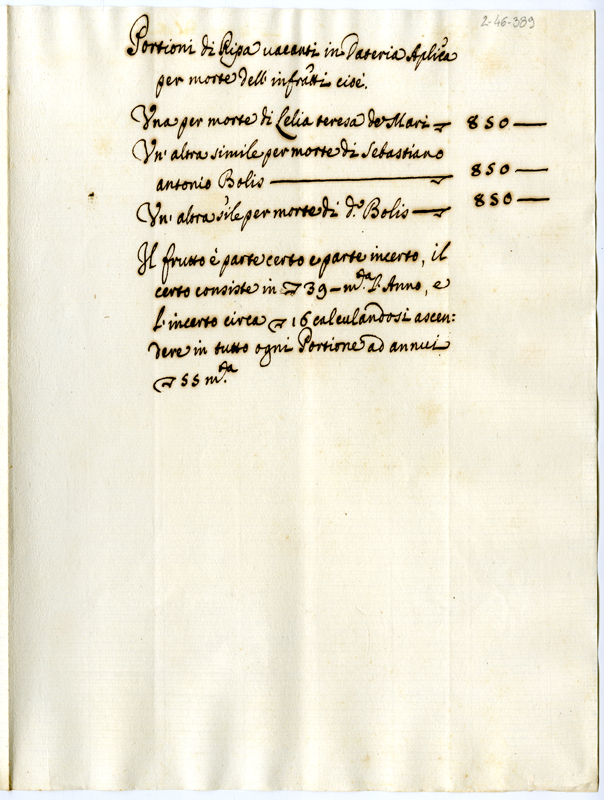 2-46-389
Portioni di Ripa vacanti in Dateria Aplica
per morte dell' infratti cioè.
Una per morte di Lelia teresa de Mari 850
Un' altra simile per morte di Sebastiano
antonio Bolis 850
Un' altra s'ile per morte di d.º Bolis 850
Il frutto è parte certo e parte incerto, il
certo consiste in 39 – m.ta l'Anno, e
l'incerto circa 16 calculandosi ascen:
dere in tutto ogni Portione ad annui
55 m.ta